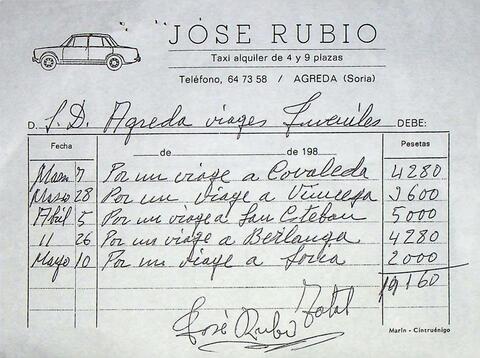 JOSE RUBIO
Taxi alquiler de 4 y 9 plazas
Teléfono, 64 73 58 / AGREDA (Soria)
D. S.D. Agreda viages Juveniles DEBE:
Fecha de de 198 Pesetas
7 Por un viage a Covaleda 4280
Marzo 28 Por un viage a Vinuesa 3600
Abril 5 Por un viage a San Esteban 5000
11 26 Por un viage a Berlanga 4280
Mayo 10 Por un viage a Soria 2000
Total 19160
José Rubio
Marín - Cintruénigo